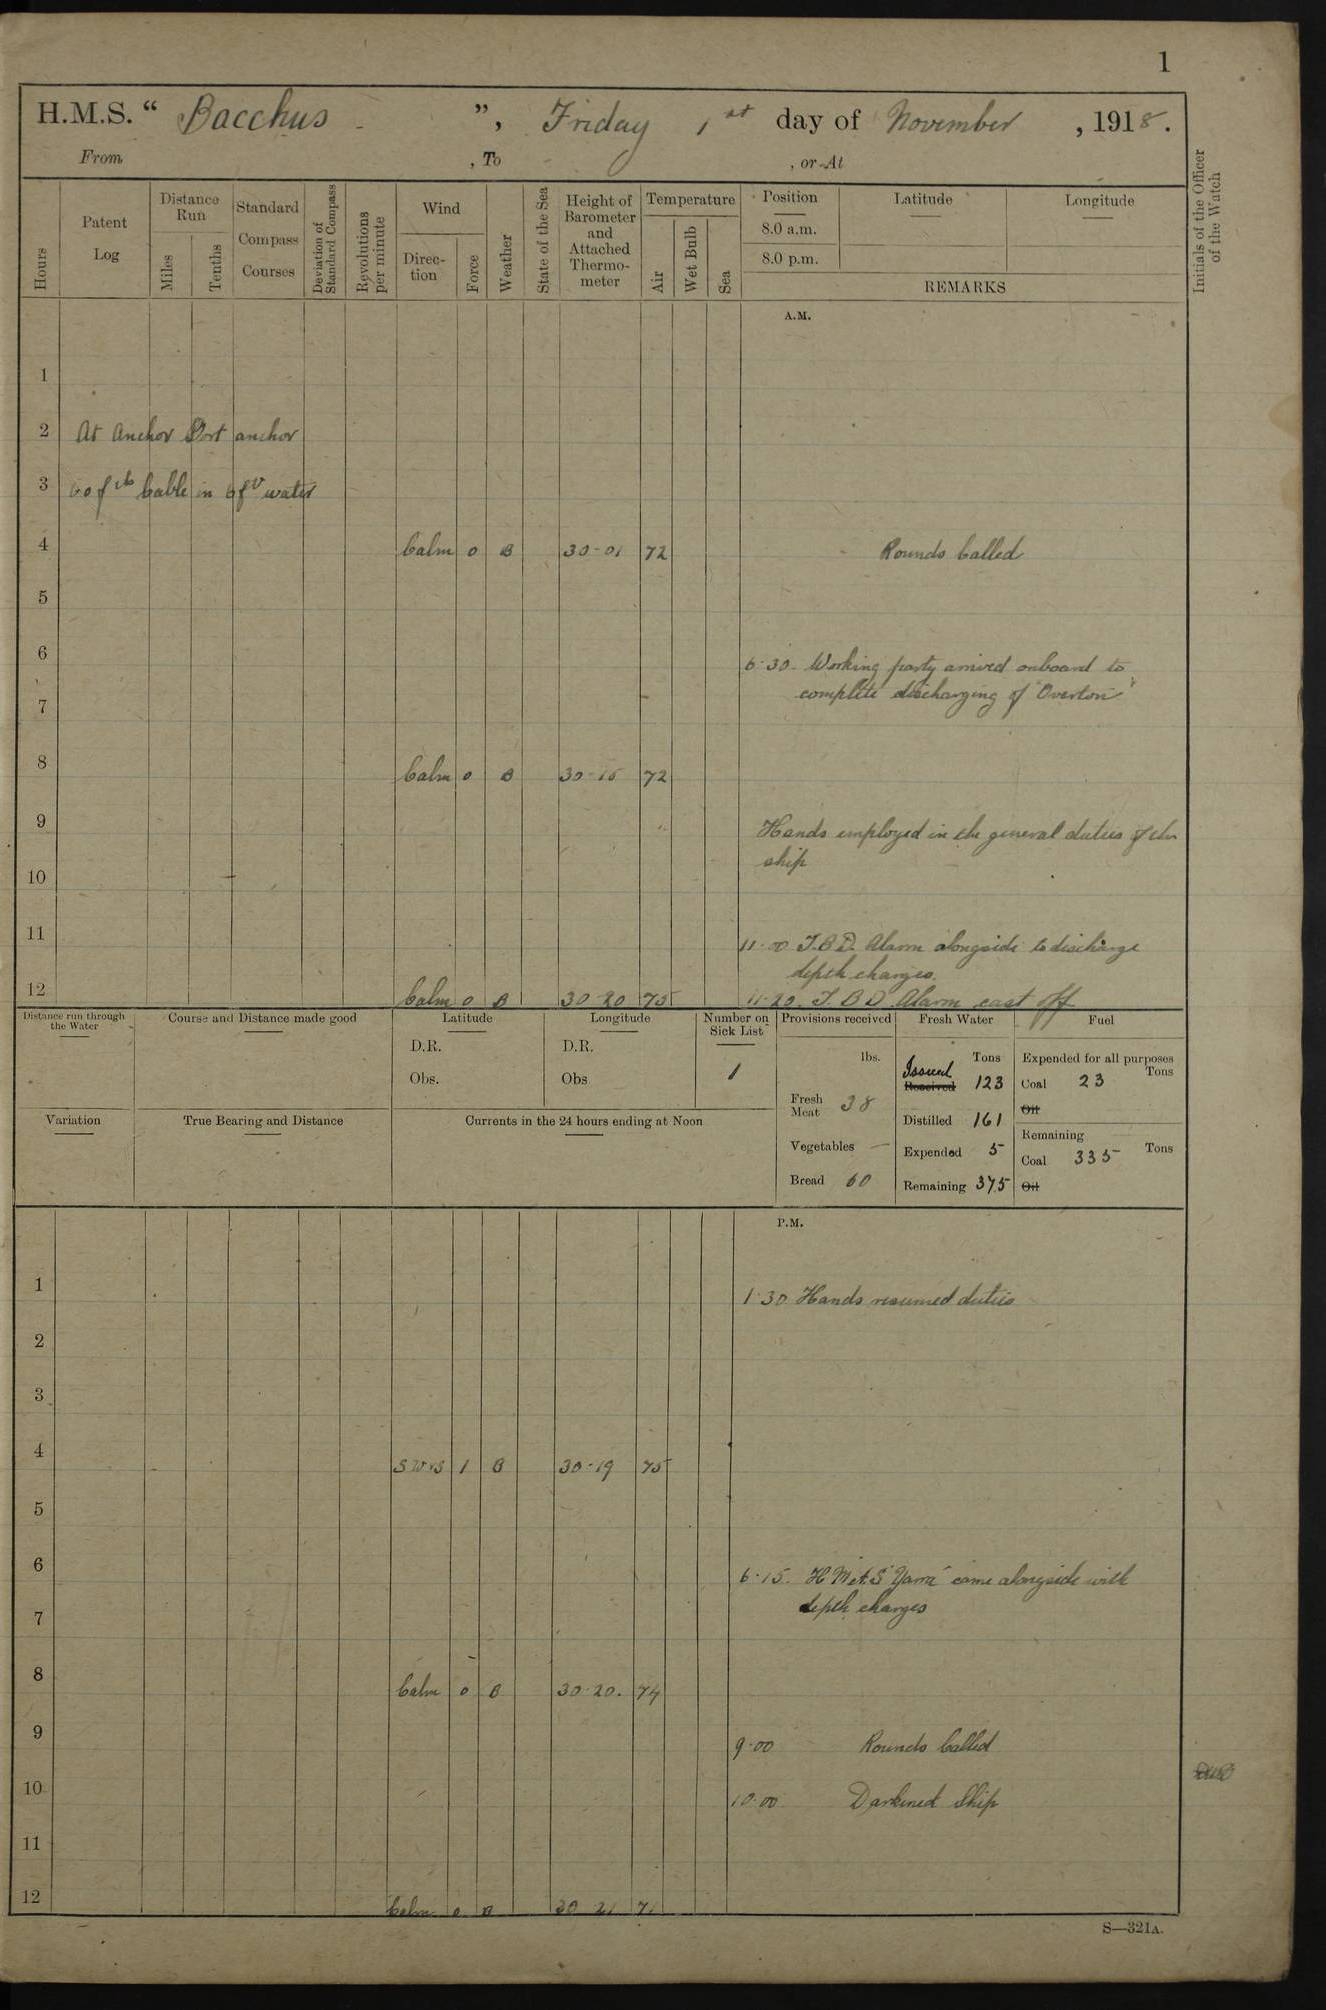 1
H.M.S. “ Bacchus ”, Friday 1st day of November , 1918.
From , To , or At
Hours
Patent Log
Distance Run
Miles
Tenths
Standard Compass Courses
Deviation of Standard Compass
Revolutions per minute
Wind
Direction
Force
Weather
State of the Sea
Height of Barometer and Attached Thermometer
Temperature
Air
Wet Bulb
Sea
Position Latitude Longitude
8.0 a.m.
8.0 p.m.
REMARKS
Initials of the Officer of the Watch
A.M.
1
2 At Anchor Port anchor
3 Cable in water
4 Calm 0 B 30-01 72 Rounds Called
5
6 6-30 Working party arrived onboard to
complete discharging of "Overton"
7
8 Calm 0 B 30-15 72
9 Hands employed in the general duties of the
ship
10
11 11-00 T.B.D. Alarm alongside to discharge
depth charges.
12 Calm 0 B 30 20 75 11-20. T.B.D. Alarm cast off
Distance run through the Water
Course and Distance made good
Latitude
D.R.
Obs.
Longitude
D.R.
Obs
Number on Sick List
1
Provisions received
lbs.
Fresh Meat 38
Vegetables —
Bread 60
Fresh Water
Tons
Issued
Received 123
Distilled 161
Expended 5
Remaining 375
Fuel
Expended for all purposes
Tons
Coal 23
Oil
Remaining
Tons
Coal 335
Oil
Variation
True Bearing and Distance
Currents in the 24 hours ending at Noon
P.M.
1 1-30 Hands resumed duties
2
3
4 1 B 30-19 75
5
6 6-15. H.M.A.S "Yarra" came alongside with
depth charges
7
8 Calm 0 B 30-20. 74
9 9-00 Rounds Called
10 10-00 Darkened Ship
11
12 Calm 0 B 30 21 71
S—321A.